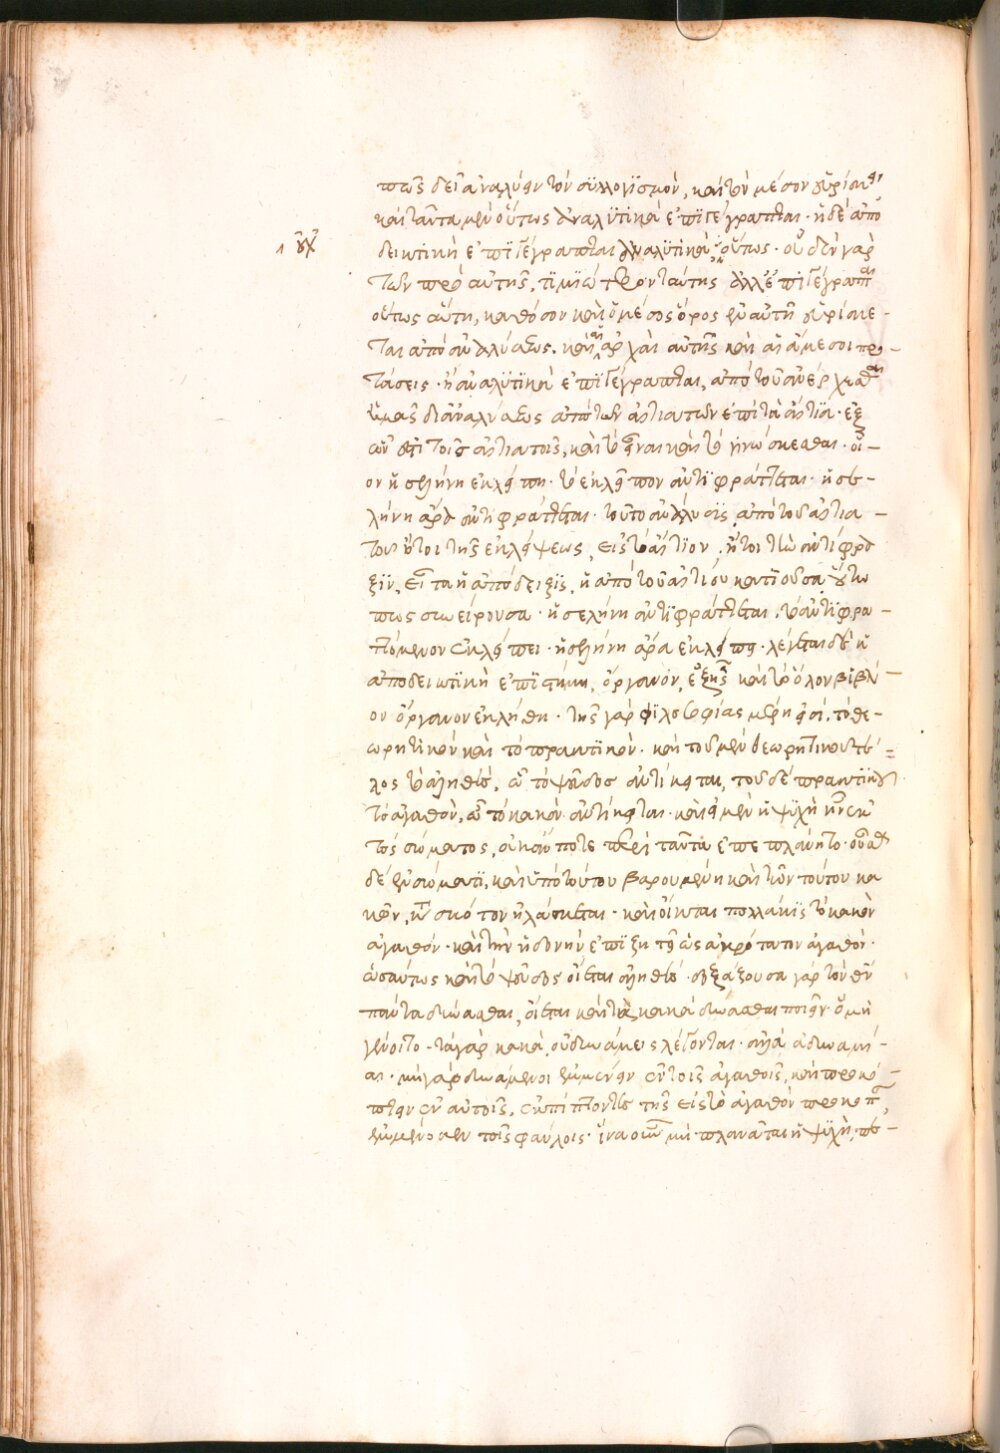 πῶς δεῖ ἀναλύειν τὸν συλλογισμὸν, καὶ τὸν μέσον εὑρίσκειν
καὶ ταῦτα μὲν οὕτως ἀναλυτικὰ ἐπιγέγραπται· ἡ δὲ ἀπο
οὐχ
δεικτικὴ ἐπιγέγραπται ἀναλυτικὰ οὕτως· οὐδὲν γὰρ
τῶν πρὸ αὐτῆς, τιμιώτερον ταύτης ἀλλ' ἐπιγέγραπται
οὕτως αὕτη, καθόσον καὶ ὁ μέσος ὅρος ἐν αὐτῇ εὑρίσκε-
ται ἀπὸ ἀναλύσεως. καὶ αἱ ἀρχαὶ αὐτῆς καὶ αἱ ἄμεσοι προ-
τάσεις· ἢ ἀναλυτικὰ ἐπιγέγραπται, ἀπὸ τοῦ ἀνέρχεσθαι
ἡμᾶς δι' ἀναλύσεως ἀπὸ τῶν αἰτιατῶν ἐπὶ τὰ αἴτια· ἐξ
ὧν ἐστὶ τοῖς αἰτιατοῖς, καὶ τὸ εἶναι καὶ τὸ γινώσκεσθαι· οἷ-
ον ἡ σελήνη ἐκλείπει· τὸ ἐκλεῖπον ἀντιφράττεται· ἡ σε-
λήνη ἄρα ἀντιφράττεται· τοῦτο ἀνάλυσις ἀπὸ τοῦ αἰτια-
τοῦ ἤτοι τῆς ἐκλείψεως, εἰς τὸ αἴτιον, ἤτοι τὴν ἀντίφρα
ξιν, εἶτα ἡ ἀπόδειξις, ἡ ἀπὸ τοῦ αἰτίου κατιοῦσα οὕτω
πως συνείρουσα· ἡ σελήνη ἀντιφράττεται, τὸ ἀντιφρα-
ττόμενον ἐκλείπει· ἡ σελήνη ἄρα ἐκλείπει· λέγεται δὲ ἡ
ἀποδεικτικὴ ἐπιστήμη, ὄργανον, ἐξ ἧς καὶ τὸ ὅλον βιβλί-
ον ὄργανον ἐκλήθη· τῆς γὰρ φιλοσοφίας μέρη εἰσί, τὸ θε-
ωρητικὸν καὶ τὸ πρακτικόν· καὶ τοῦ μὲν θεωρητικοῦ τέ-
λος τὸ ἀληθές, ᾧ τὸ ψεῦδος ἀντίκειται, τοῦ δὲ πρακτικοῦ
τὸ ἀγαθὸν, ᾧ τὸ κακὸν ἀντίκειται· καὶ εἰ μὲν ἡ ψυχὴ ἦν ἐκ
τὸς σώματος, οὐκ ἄν ποτε περὶ ταῦτα ἐπεπλάνητο· οὖσα
δὲ ἐν σώματι, καὶ ὑπὸ τούτου βαρουμένη καὶ τῶν τούτου κα
κῶν, σκότον ἠλάσκεται· καὶ οἴεται πολλάκις τὸ κακὸν
ἀγαθόν· καὶ τὴν ἡδονὴν ἐπιζητεῖ ὡς ἀκρότατον ἀγαθόν·
ὡσαύτως καὶ τὸ ψεῦδος οἴεται ἀληθές· δοξάζουσα γὰρ τὸν θεὸν
πάντα δύνασθαι, οἴεται καὶ τὰ κακὰ δύνασθαι ποιεῖν· ὃ μὴ
γένοιτο· τὰ γὰρ κακὰ, οὐ δυνάμεις λέγονται· ἀλλὰ ἀδυναμί-
αι· μὴ γὰρ δυνάμενοι ἐμμένειν ἐν τοῖς ἀγαθοῖς, καὶ προκό-
πτειν ἐν αὐτοῖς, ἐκπίπτοντες τῆς εἰς τὸ ἀγαθὸν προκοπῆς,
ἐμμένομεν τοῖς φαύλοις· ἵνα οὖν μὴ πλανᾶται ἡ ψυχὴ, πε-